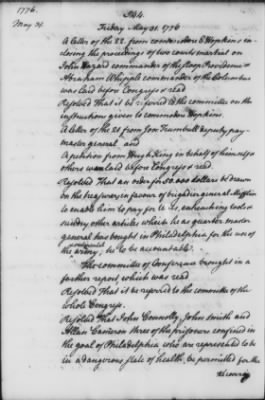 1776.
344.
May 31.
Friday May 31. 1776
A letter of the 22. from commodore E Hopkins in-
closing the proceedings of two courts martial on
John Hazard commander of the sloop Providence &
Abraham Whipple commander of the Columbus
was laid before Congress & read
Resolved That it be referred to the committee on the
instructions given to commodore Hopkins.
A letter of the 28 from Jon Trumbull deputy pay-
master general and
A petition from Hugh King in behalf of himself &
others was laid before Congress & read
Resolved That an order for 50.000 dollars be drawn
on the treasurers in favour of brigadier general Mifflin
to enable him to pay for tents, entrenching tools &
sundry other articles which he as quarter master
general has bought in Philadelphia for the use of
the continental army, he to be accountable.
The committee of Conference brought in a
farther report which was read
Resolved That it be referred to the committee of the
whole Congress.
Resolved That John Connolly, John Smith and
Allan Cameron three of the prisoners confined in
the goal of Philadelphia who are represented to be
in a dangerous state of health, be permitted for the